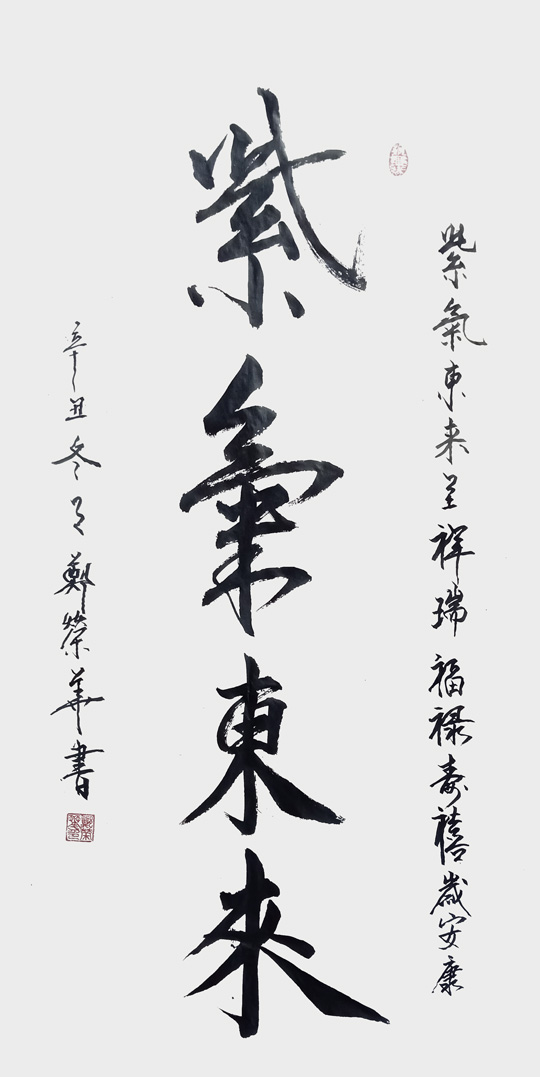 紫氣東来呈祥瑞福禄寿禧歲安康
紫氣東來
辛丑冬月鄭榮華書